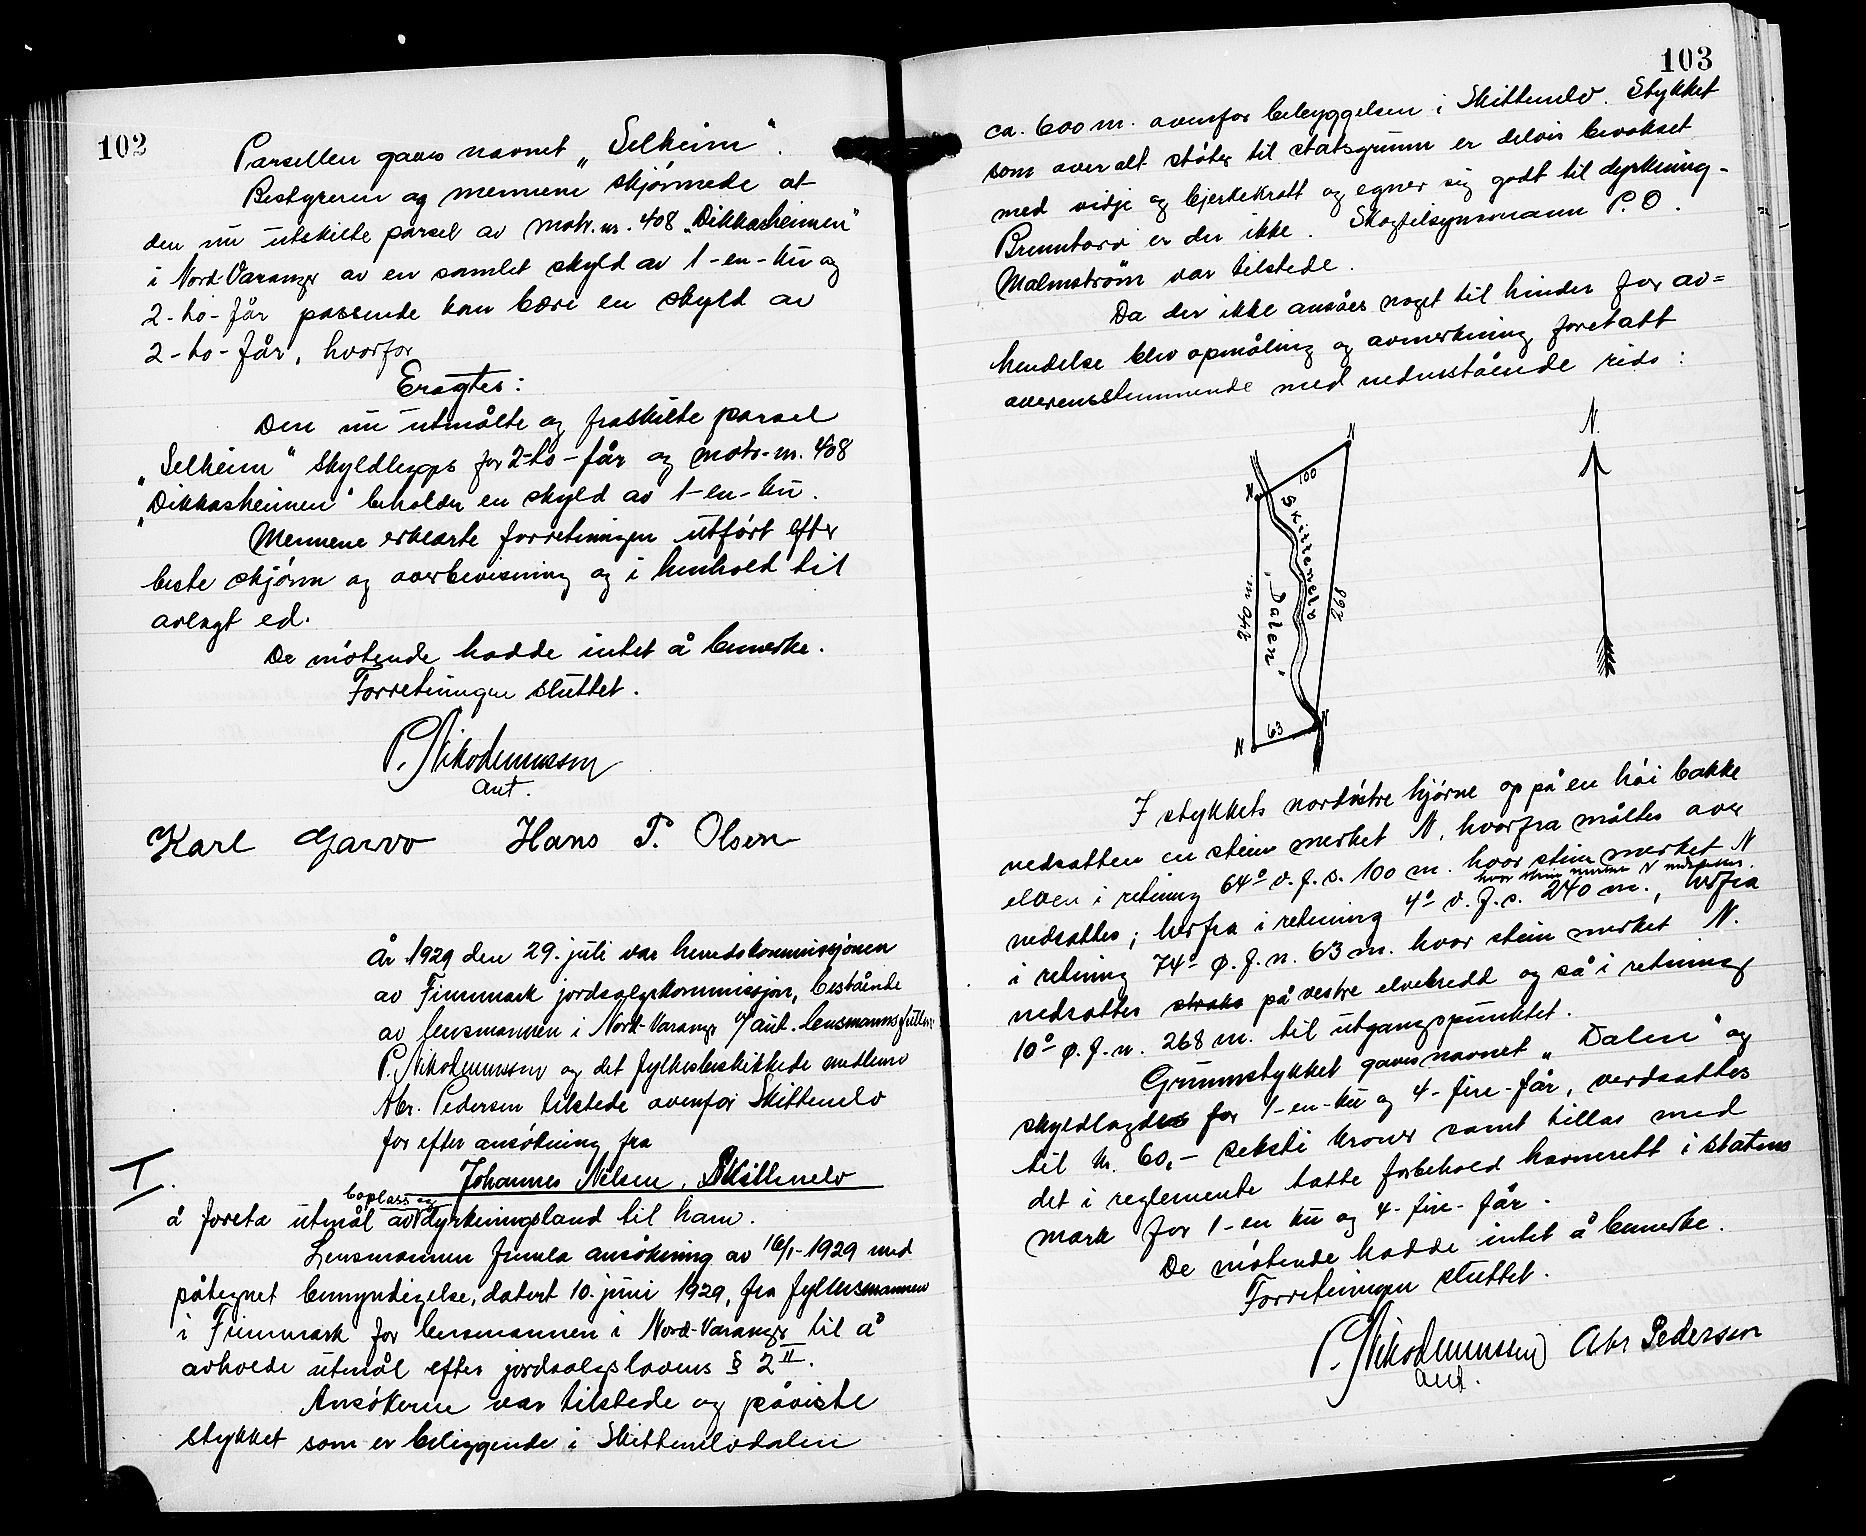 102
Parsellen gaves navnet „Selheim".
Bestyreren og mennene skjønnede at
den nu utskilte parsel av matr. nr. 408 „Dikkasheimen"
i Nord-Varanger av en samlet skyld av 1-en-ku og
2-to-får passende kan bære en skyld av
2-to-får, hvorfor
Eragtes:
Den nu utmålte og fraskilte parsel
„Selheim" skyldlegges for 2-to-får og matr.nr. 408
„Dikkasheimen" beholder en skyld av 1-en-ku.
Mennene erklærte forretningen utført efter
beste skjønn og overbevisning og i henhold til
avlagt ed.
De møtende hadde intet å bemerke.
Forretningen sluttet.
P. Nikodemussen
aut.
Karl Garvo Hans P. Olsen
År 1929 den 29. juli var herredskommissjonen
av Finnmark jordsalgskommissjon, bestående
av lensmannen i Nord-Varanger v/ aut. lensmannsfullm.
P. Nikodemussen og det fylkesbeskikkede medlem
Abr. Pedersen tilstede ovenfor Skittenelv
for efter ansøkning fra
I. Johannes Nilsen, Skittenelv
boplass og
å foreta utmål av dyrkningsland til ham.
Lensmannen fremla ansøkning av 16/1-1929 med
påtegnet bemyndigelse, datert 10. juni 1929, fra fylkesmannen
i Finnmark for lensmannen i Nord-Varanger til å
avholde utmål efter jordsalgslovens § 2 II.
Ansøkeren var tilstede og påviste
stykket som er beliggende i Skittenelvdalen
103
ca. 600 m. ovenfor bebyggelsen i Skittenelv. Stykket
som overalt støter til statsgrunn er delvis bevokset
med vidje og bjerkekratt og egner sig godt til dyrkning.
Brenntorv er der ikke. Skogtilsynsmann P. O.
Malmstrøm var tilstede.
Da der ikke ansåes noget til hinder for av=
hendelse blev opmåling og avmerkning foretatt
overensstemmende med nedenstående rids:
N.
N
100
N
Skittenelv
„Dalen"
240 m
268
63
N
N
I stykkets nordøstre hjørne op på en høi bakke
nedsatten en stein merket N, hvorfra måltes over
elven i retning 64° v.f.s. 100 m. hvor stein merket N
hvor stein merket N nedsattes.
nedsattes; herfra i retning 4° v.f.s. 240 m., herfra
i retning 74° ø.f.n. 63 m. hvor stein merket N.
nedsattes straks på vestre elvebredd og så i retning
10° ø.f.n. 268 m. til utgangspunktet.
Grunnstykket gaves navnet „Dalen" og
skyldlagdes for 1-en-ku og 4-fire-får, verdsattes
til kr. 60,- seksti kroner samt tillas med
det i reglemente tatte forbehold havnerett i statens
mark for 1-en ku og 4-fire-får.
De møtende hadde intet å bemerke.
Forretningen sluttet.
P. Nikodemussen Abr Pedersen
aut.